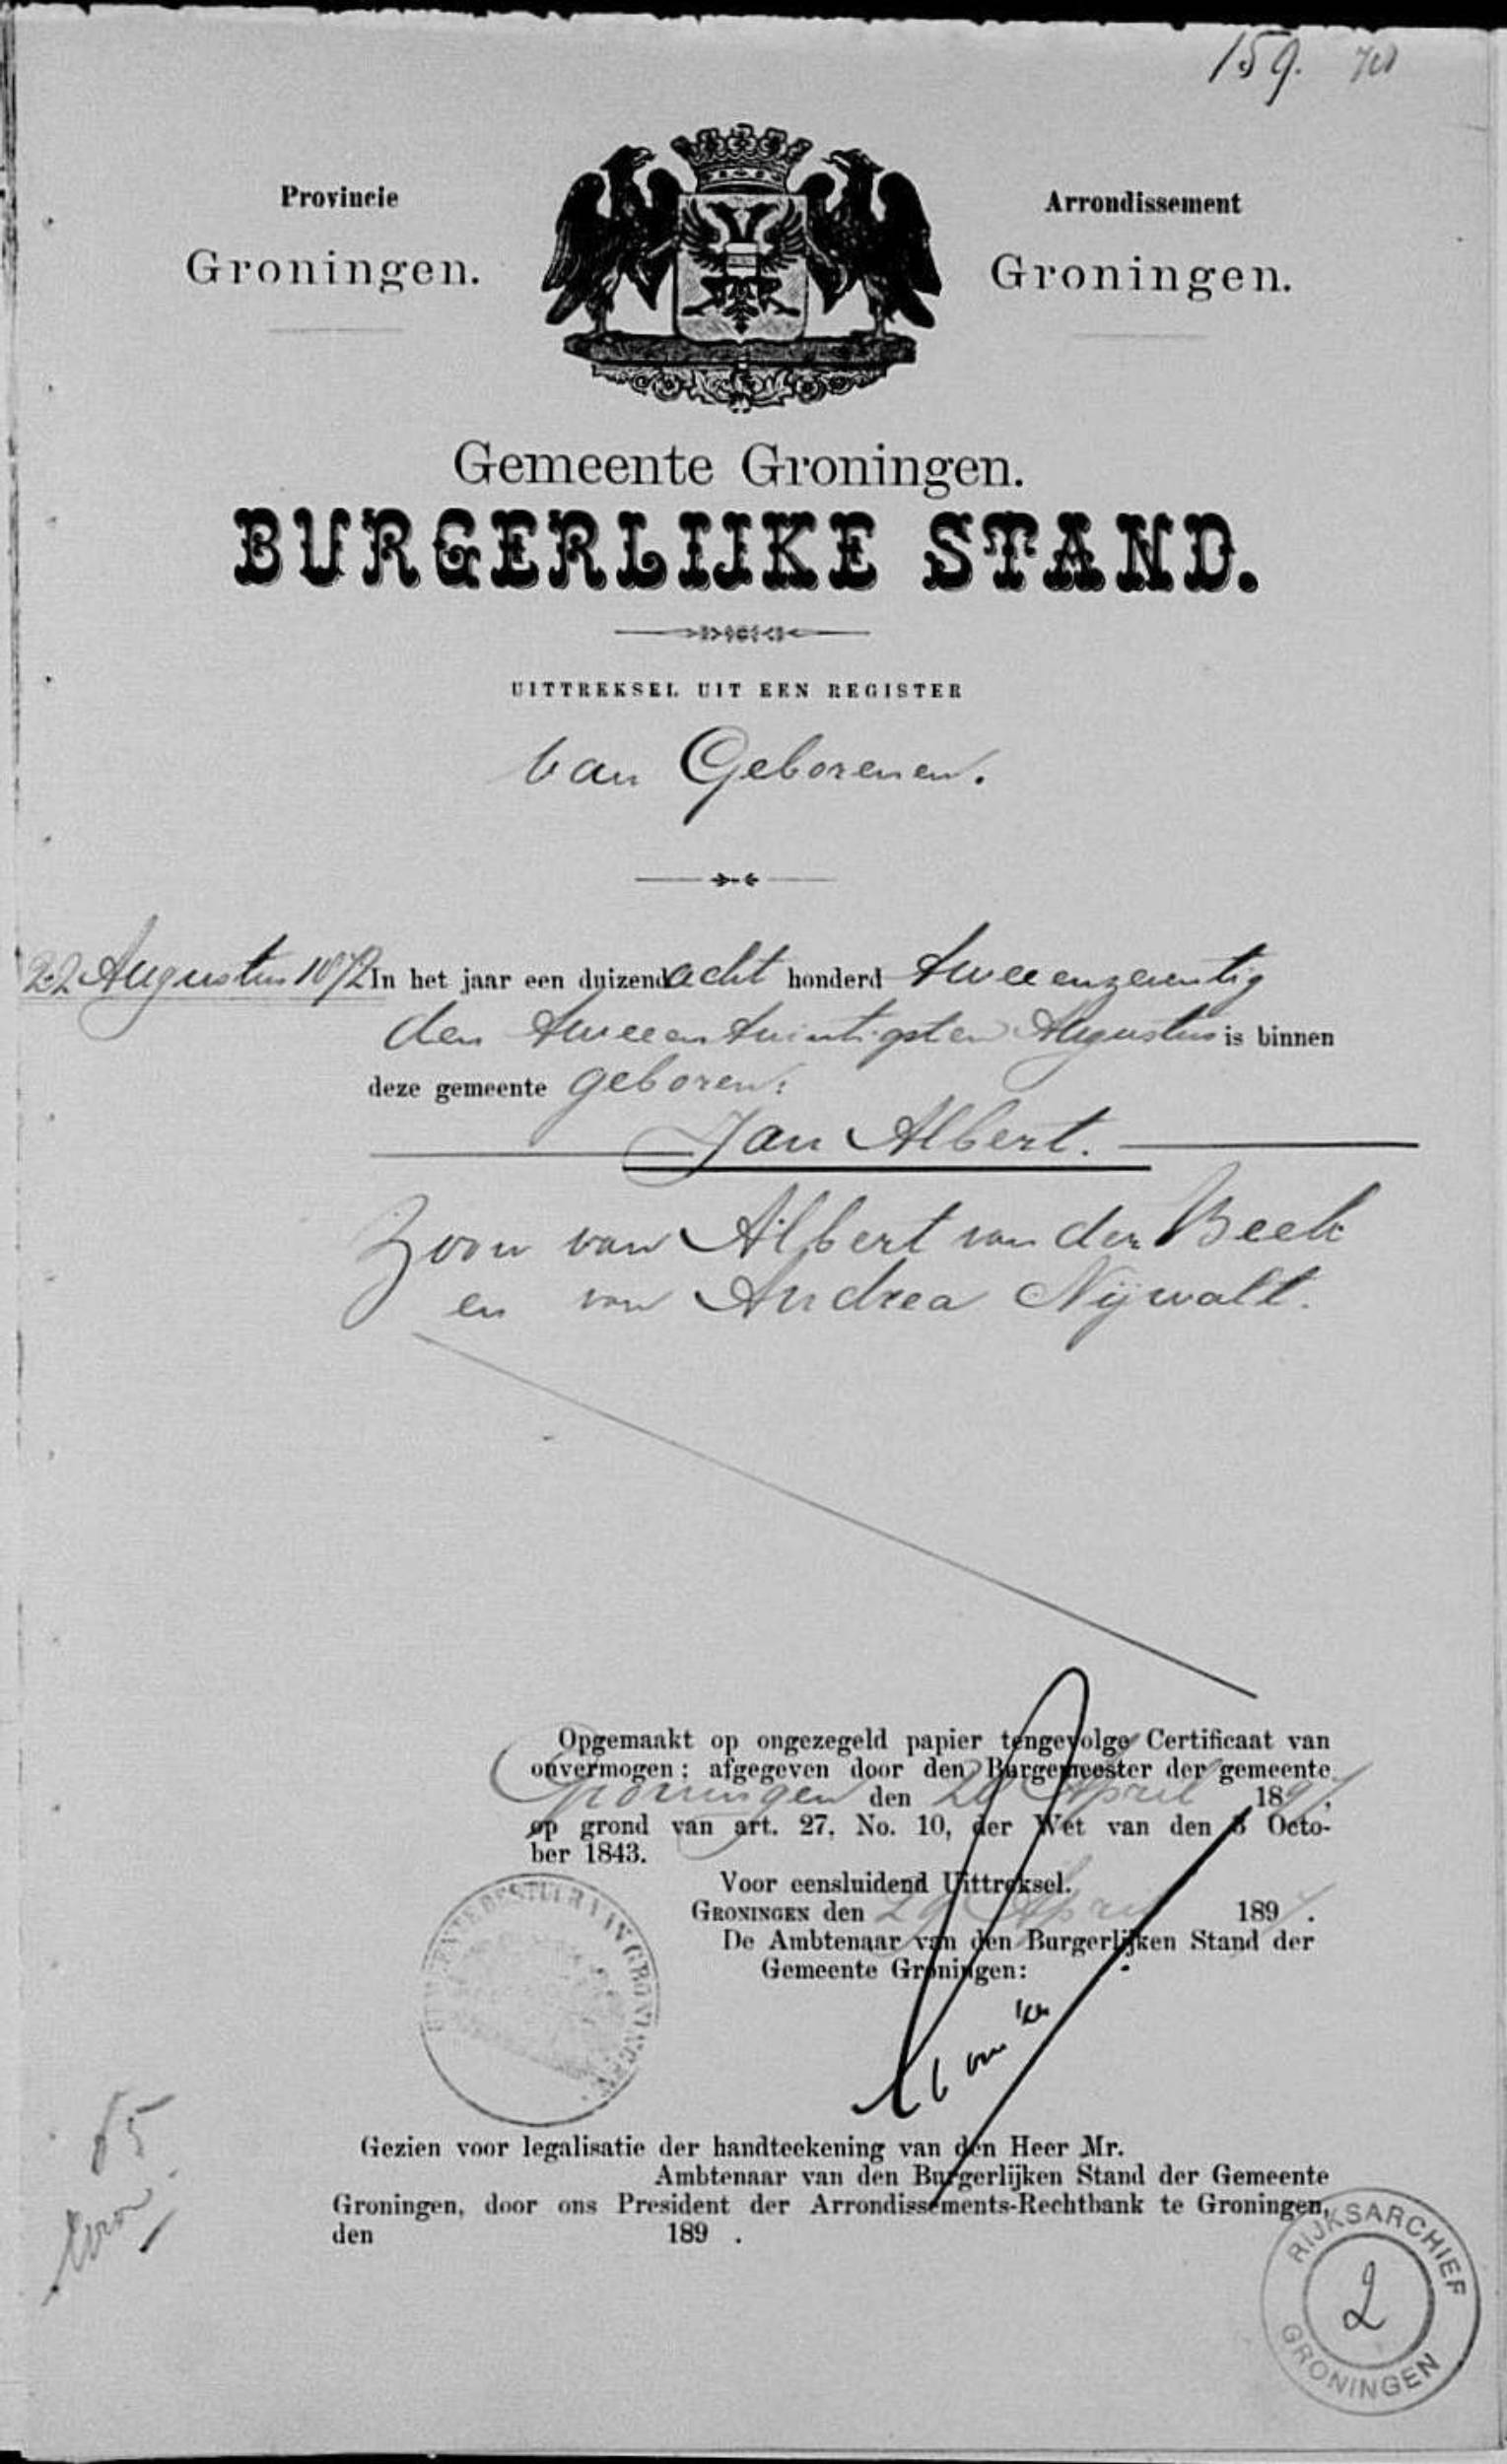 159.
Provincie
Groningen.
Arrondissement
Groningen.
Gemeente Groningen.
BURGERLIJKE STAND.
UITTREKSEL UIT EEN REGISTER
van Geborenen.
22 Augustus 1872 In het jaar een duizend acht honderd tweeenzeventig
den tweeentwintigsten Augustus is binnen
deze gemeente geboren:
Jan Albert.
Zoon van Albert van der Beek
en van Andrea Nijwall.
Opgemaakt op ongezegeld papier tengevolge Certificaat van
onvermogen; afgegeven door den Burgemeester der gemeente
Groningen den April 1897.
op grond van art. 27, No. 10, der Wet van den 3 Octo-
ber 1843.
Voor eensluidend Uittreksel.
GRONINGEN den 29 April 1897.
De Ambtenaar van den Burgerlijken Stand der
Gemeente Groningen:
GEMEENTEBESTUUR VAN GRONINGEN
Gezien voor legalisatie der handteekening van den Heer Mr.
Ambtenaar van den Burgerlijken Stand der Gemeente
Groningen, door ons President der Arrondissements-Rechtbank te Groningen,
den 189 .
RIJKSARCHIEF
2
GRONINGEN